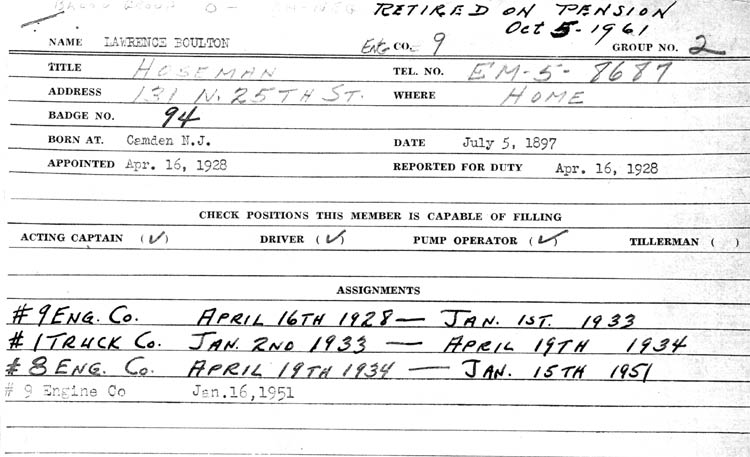 BLOOD GROUP O - RH-NEG
RETIRED ON PENSION
Oct 5-1961
NAME LAWRENCE BOULTON Eng. CO. 9 GROUP NO. 2
TITLE HOSEMAN TEL. NO. EM-5-8687
ADDRESS 131 N. 25TH ST. WHERE HOME
BADGE NO. 94
BORN AT. Camden N.J. DATE July 5, 1897
APPOINTED Apr. 16, 1928 REPORTED FOR DUTY Apr. 16, 1928
CHECK POSITIONS THIS MEMBER IS CAPABLE OF FILLING
ACTING CAPTAIN (✓) DRIVER (✓) PUMP OPERATOR (✓) TILLERMAN ( )
ASSIGNMENTS
# 9 ENG. CO. APRIL 16TH 1928 — JAN. 1ST. 1933
# 1 TRUCK CO. JAN. 2ND 1933 — APRIL 19TH 1934
# 8 ENG. CO. APRIL 19TH 1934 — JAN. 15TH 1951
# 9 Engine Co Jan.16,1951